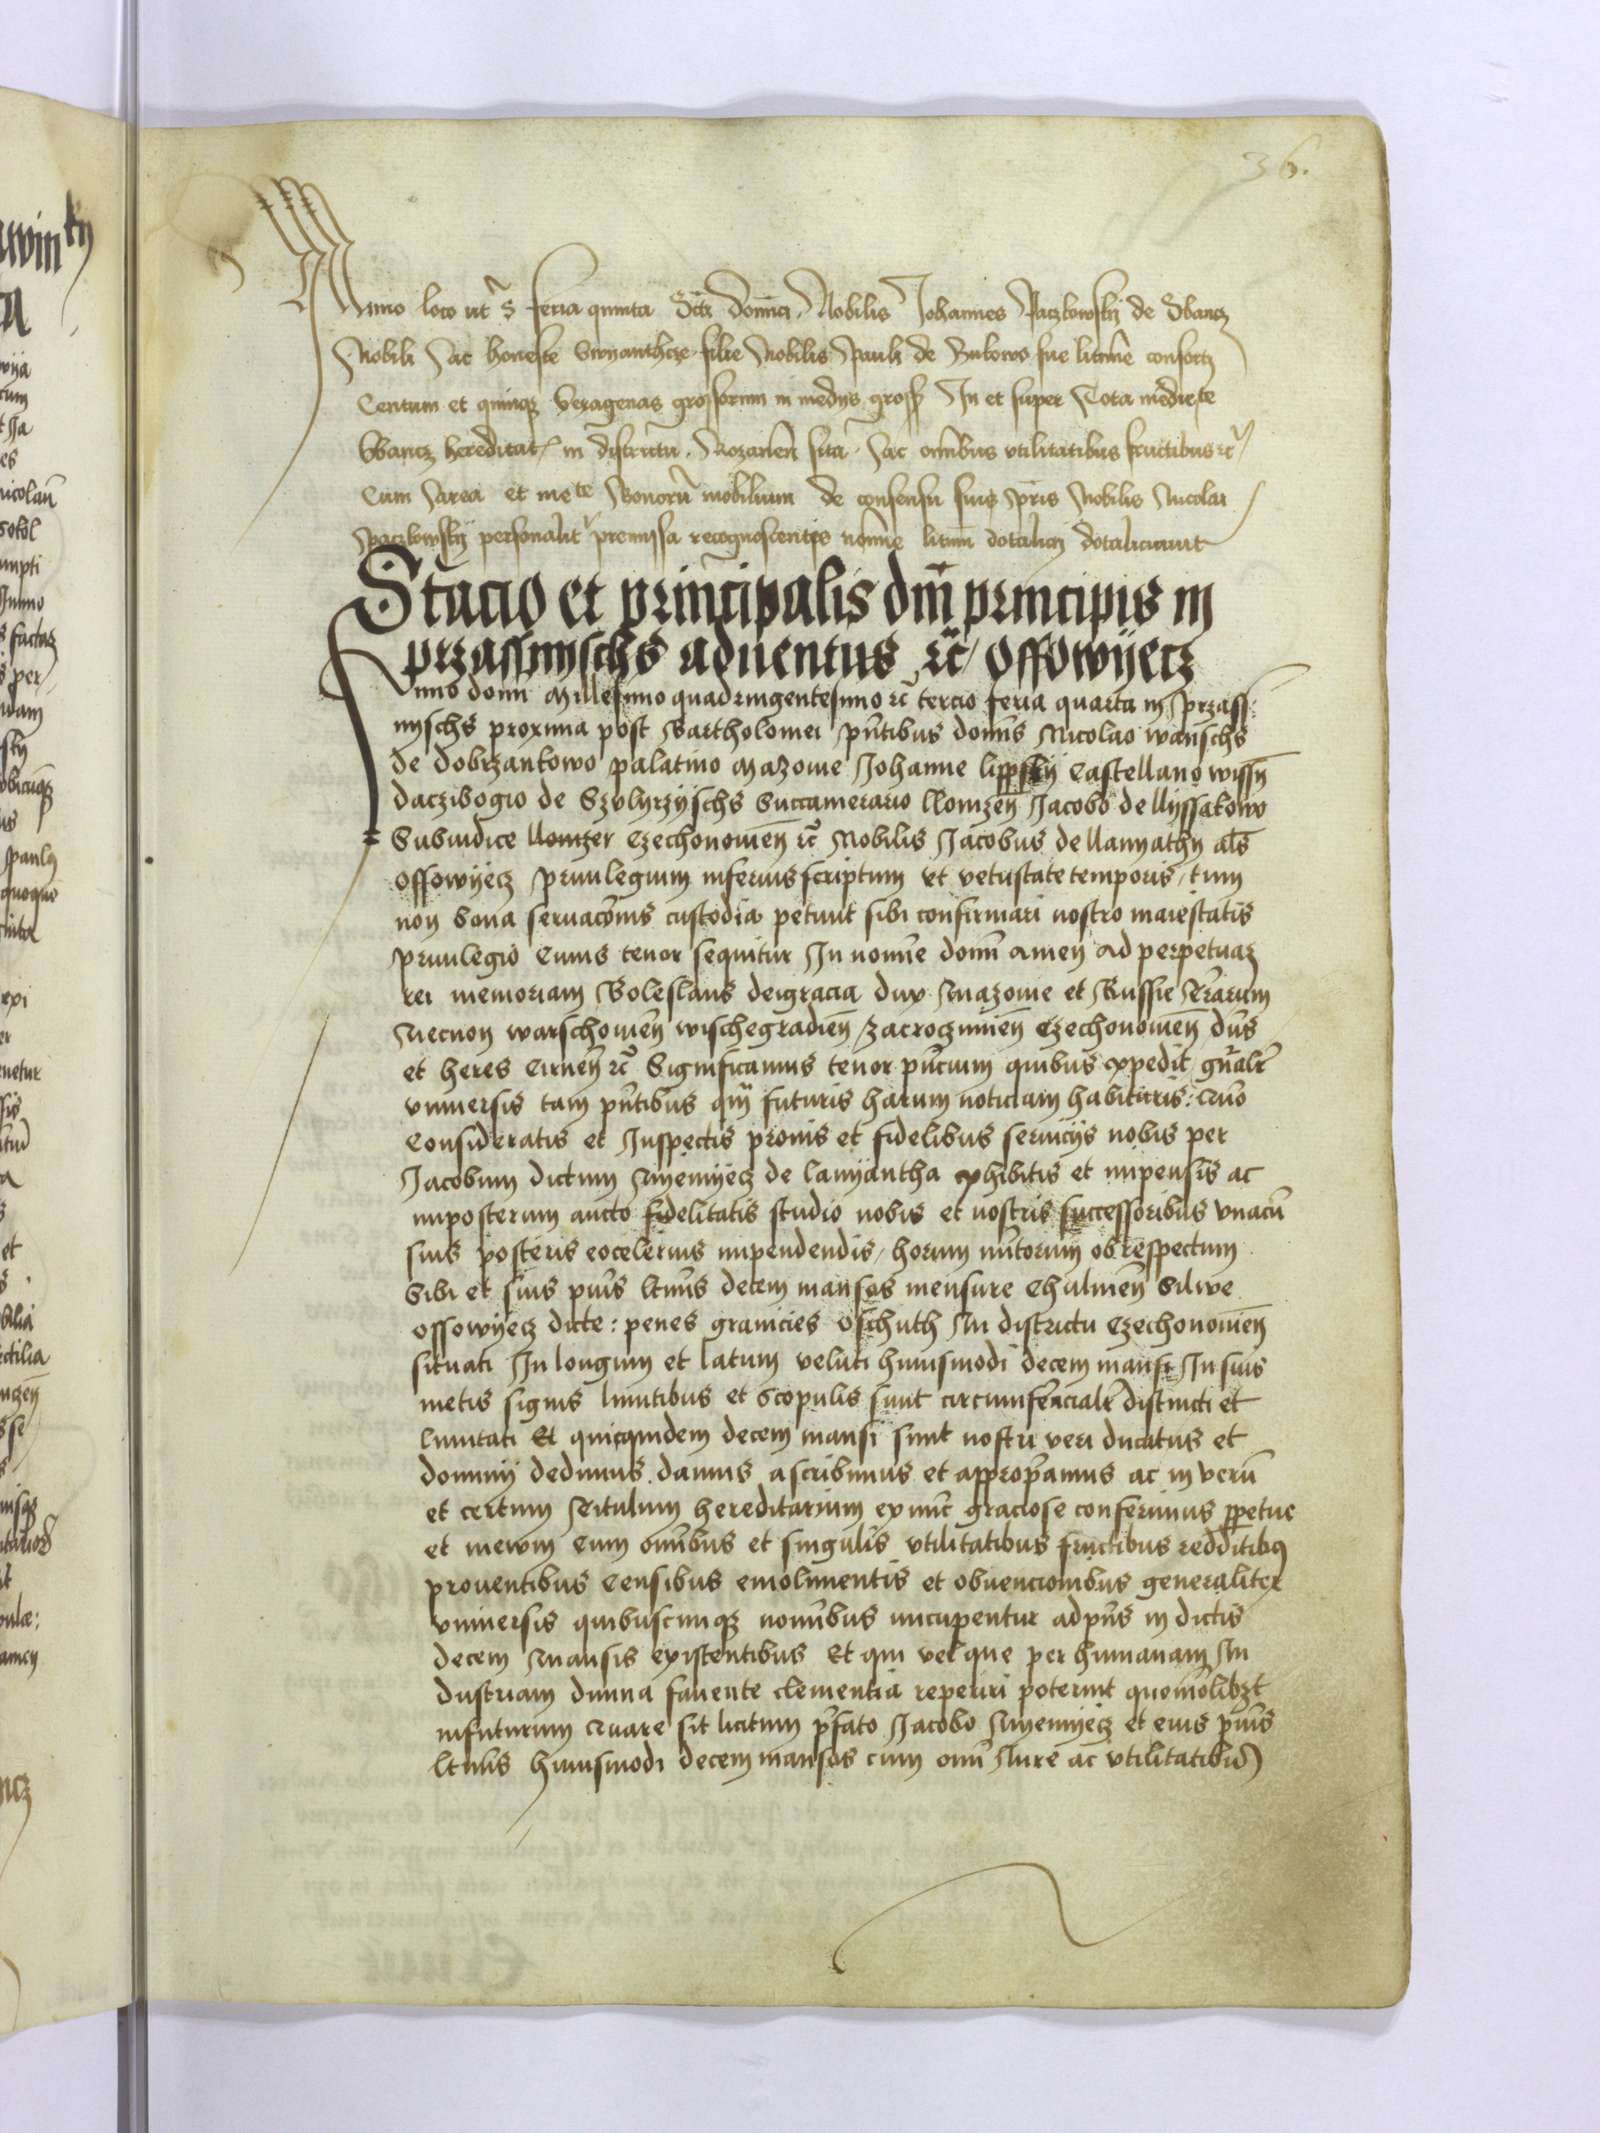 36.
Anno loco ut s feria quinta dom̄ca Nobilis Johannes Paczkowskÿ de Gbancz
Nobili ac honeste filie Nobilis Pauli de Bukowo sue litīme consorti
Centum et quinqz sexagenas grossorum in medÿs gross In et super Tota mediete
Gbancz hereditat in districtu Rozanēn sita ac omībus utilitatibus fructibus rc̄
Cum area et mete bonorū mobilium de consensu sui p̄ris Nobilis Nicolai
Paczkowskÿ personalit premissa recognoscentis nomīe litīmi dotalicÿ dotaliciauit
Stacio et principalis dm̄ principis in
przassnÿschs aduentus rc̄ Ossowÿecz
Anno domī Millesimo quadringentesimo rc̄ tercio feria quarta in przass
nÿschs proxima post Bartholomei pn̄tibus domīs Nicolao wanschs
de dobrzankowo palatino Mazouie Johanne lippskÿ Castellano wissn̄
daczibogio de Succamerario llomzen̄ Jacobo de llÿssakowo
Subiudice llomzer Czechonouien̄ rc̄ Nobilis Jacobus de llanyathÿ als̄
Ossowÿecz priuilegium inferius scriptum et vetustate temporis tum
non bona seruacōnis custodia petiuit sibi confirmari nostro maiestatis
priuilegio Cuius tenor sequitur In nomīe domī amen ad perpetuaz
rei memoriam Boleslaus deigracia dux Mazouie et Russie Rrarum
Necnon warschouien̄ wischegradien̄ zacroczimien̄ Czechonouien̄ dn̄s
et heres Cirnen̄ rc̄ Significamus tenor pn̄cium quibus expedit gn̄alr̄
vniuersis tam pn̄tibus qm̄ futuris harum noticiam habituris
Consideratis et Inspectis pronis et fidelibus seruicÿs nobis per
Jacobum dictum Nÿemÿecz de lanÿantha exhibitis et inpensis ac
inposterum aucto fidelitatis studio nobis et nostris successoribus vnacū
suis posteris eocelerius inpendendis horum mītorum ob respectum
Sibi et suis puīs ltīmis decem mansos mensure Chulmen̄ Silwe
ossowÿecz dicte penes granicies Oschuth In districtu Czechonouien̄
situati In longum et latum veluti huiusmodi decem mansi In suis
metis signis limitibus et scopulis sunt circumferencialr̄ distincti et
limitati Et quiquidem decem mansi sunt nostri veri ducatus et
dominÿ dedimus damus ascribimus et appropamus ac in verū
et certum Titulum hereditarium ex nūc graciose conferimus ppetue
et in ewm cum omībus et singulis vtilitatibus fructibus redditibus
prouentibus Censibus emolimentis et obuencionibus generaliter
vniuersis quibuscunqz nomībus nucupentur adpn̄s in dictis
decem Mansis existentibus Et qui vel que per humanam In
dustriam diuina fauente clementia reperiri poterint quomōlibzt
infuturum Quare sit licitum pfato Jacobo Nÿemÿecz et eius puīs
ltīmis huiusmodi decem mansos cum omī Iure ac vtilitatibus